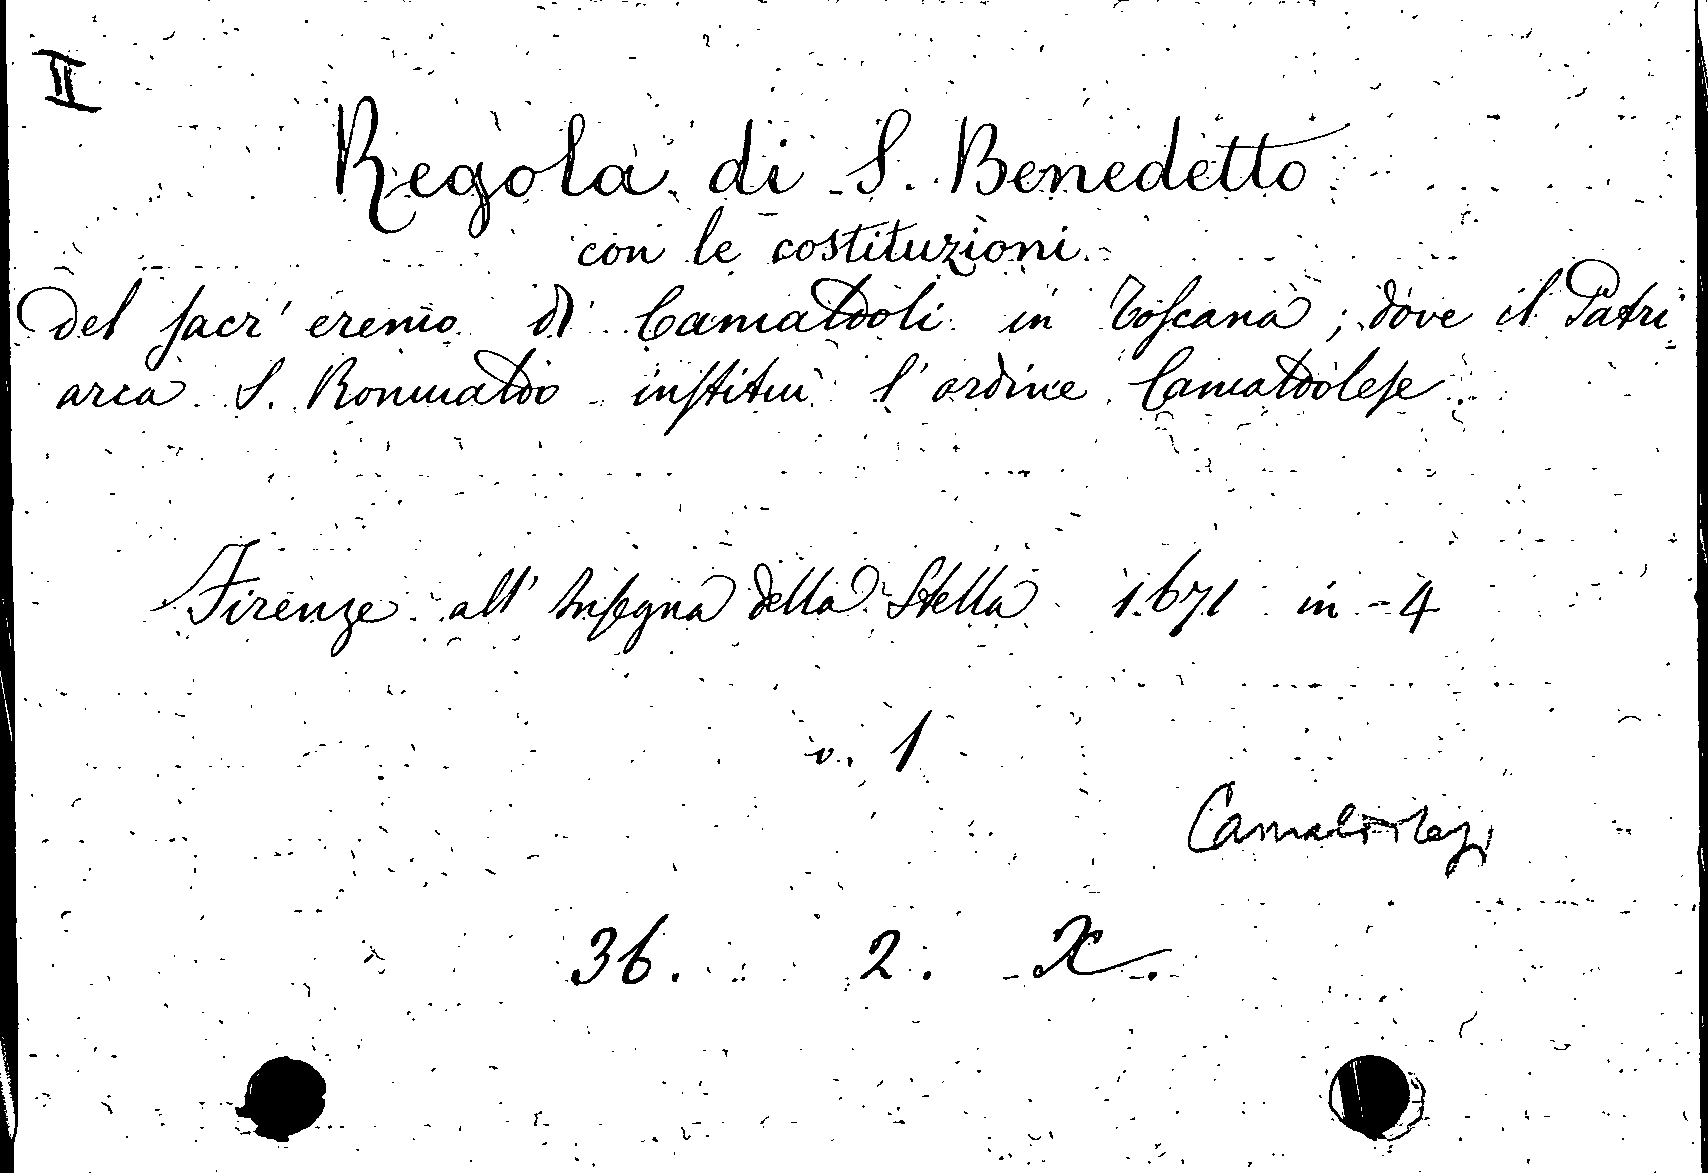 II
Regola di S. Benedetto
con le costituzioni
del sacr' eremo di Camaldoli in Toscana; dove il Patri
arca S. Romualdo instituì l'ordine Camaldolese
Firenze all' Insegna della Stella 1671 in - 4
v. 1
Camaldolesi
36. 2. X.